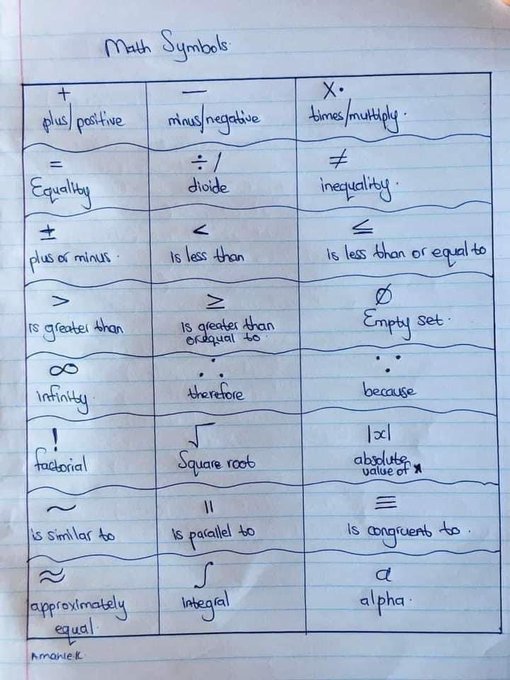 Math Symbols
+ — X·
plus/positive minus/negative times/multiply.
= ÷ / ≠
Equality divide inequality.
± < ≤
plus or minus. is less than is less than or equal to
> ≥ ∅
is greater than is greater than Empty set.
or equal to.
∞ ∴ ∵
infinity therefore because
! √ |x|
factorial Square root absolute
value of x
~ || ≡
is similar to is parallel to is congruent to.
≈ ∫ α
approximately integral alpha.
equal.
Amanie.K.